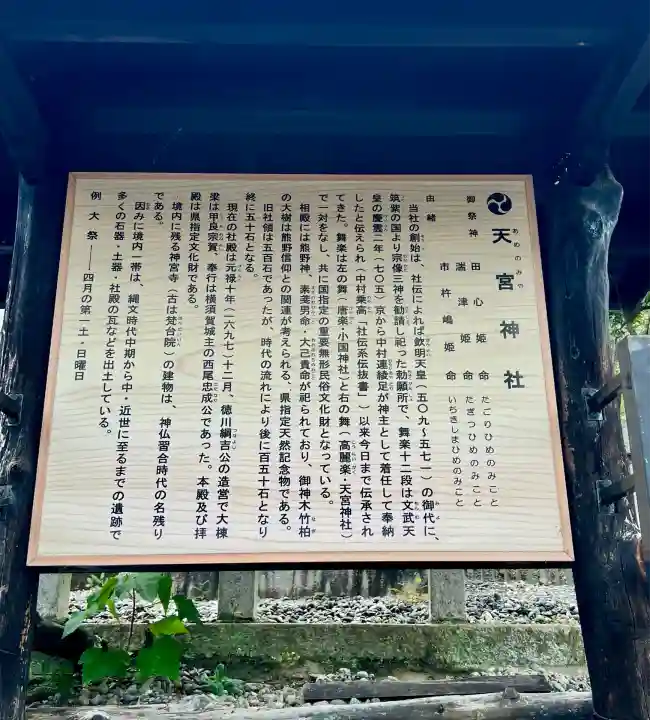 天宮神社
あめのみや
御祭神 田心姫命 たごりひめのみこと
湍津姫命 たぎつひめのみこと
市杵嶋姫命 いちきしまひめのみこと
由緒
当社の創始は、社伝によれば欽明天皇(五〇九〜五七一)の御代に、
筑紫の国より宗像三神を勧請し祀った勅願所で、舞楽十二段は文武天
皇の慶雲二年(七〇五)京から中村連綾足が神主として着任して奉納
したと伝えられ(中村乗高「社伝系伝抜書」)以来今日まで伝承され
てきた。舞楽は左の舞(唐楽・小国神社)と右の舞(高麗楽・天宮神社)
で一対をなし、共に国指定の重要無形民俗文化財となっている。
相殿には熊野神、素戔男命・大己貴命が祀られており、御神木竹柏
の大樹は熊野信仰との関連が考えられる、県指定天然記念物である。
旧社領は五百石であったが、時代の流れにより後に百五十石となり
終に五十石となる。
現在の社殿は元禄十年(一六九七)十二月、徳川綱吉公の造営で大棟
梁は甲良宗賀、奉行は横須賀城主の西尾忠成公であった。本殿及び拝
殿は県指定文化財である。
境内に残る神宮寺(古は梵台院)の建物は、神仏習合時代の名残り
である。
因みに境内一帯は、縄文時代中期から中・近世に至るまでの遺跡で
多くの石器・土器・社殿の瓦などを出土している。
例大祭――四月の第一土・日曜日